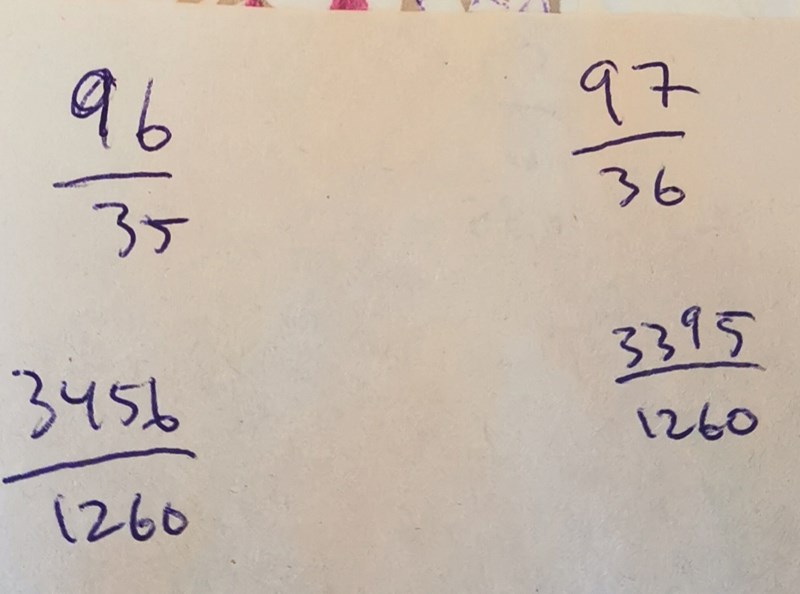 96
35
97
36
3456
1260
3395
1260